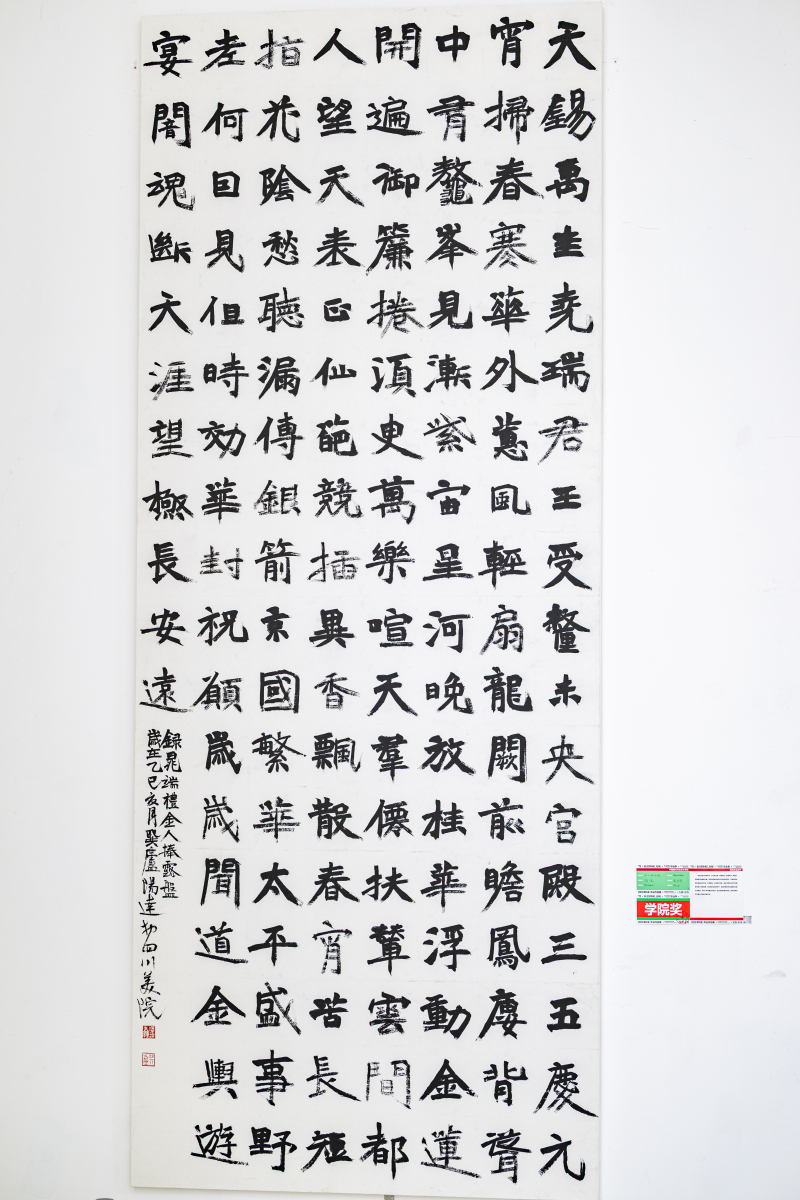 天錫禹圭堯瑞君王受釐未央宮殿三五慶元
宵掃春寒華外蕙風輕扇龍闕前瞻鳳廔背聳
中有鼇峯見漸紫宙星河晚放桂華浮動金蓮
開遍御簾捲須臾萬樂喧天羣僊扶輦雲間都
人望天表正仙葩競插異香飄散春宵苦長短
指花陰愁聽漏傳銀箭京國繁華太平盛事野
老何日見但時効華封祝願歲歲聞道金輿遊
宴闇魂斷天涯望極長安遠
錄晁端禮金人捧露盤
歲在乙巳亥月巽廬陽達於四川美院
学院奖